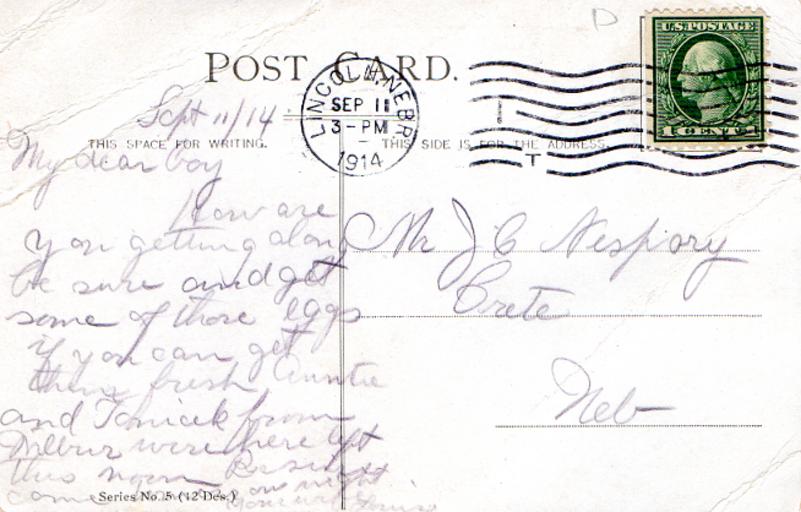 U.S. POSTAGE
1 CENT 1
POST CARD.
LINCOLN, NEBR.
SEP 11
3-PM
1914
T
THIS SPACE FOR WRITING.
THIS SIDE IS FOR THE ADDRESS.
Sept 11/14
My dear boy
How are
you getting along
be sure and get
some of those eggs
if you can get
them fresh Auntie
and from
Wilbur were here left
this noon
come night
Your
Mr J C Nespory
Crete
Neb
Series No. 5 (12 Des.)